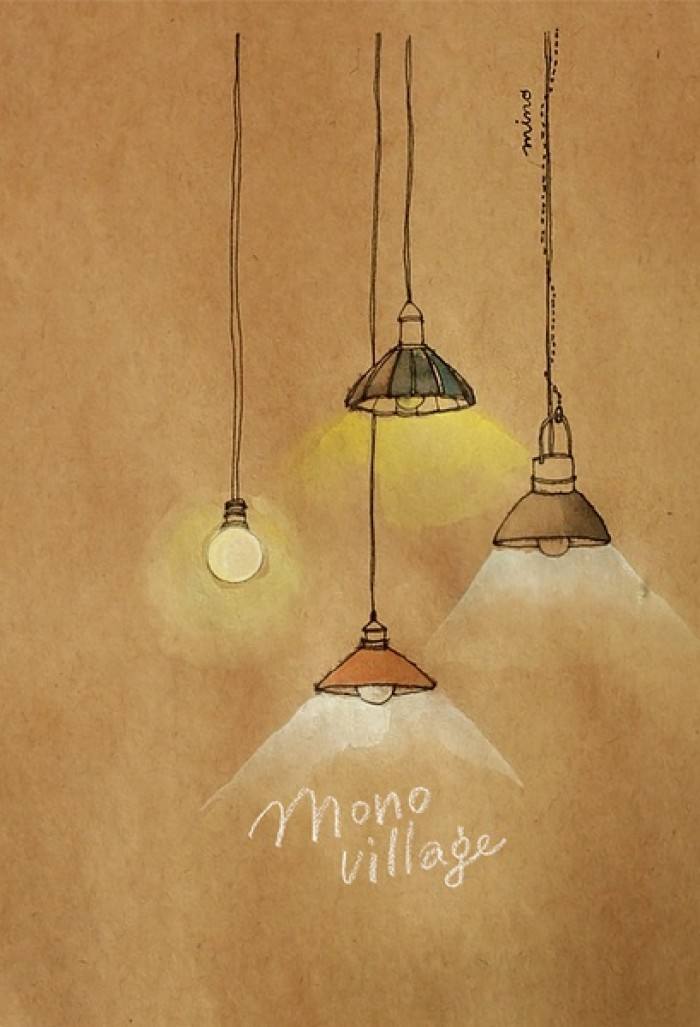 mino
Mono
village